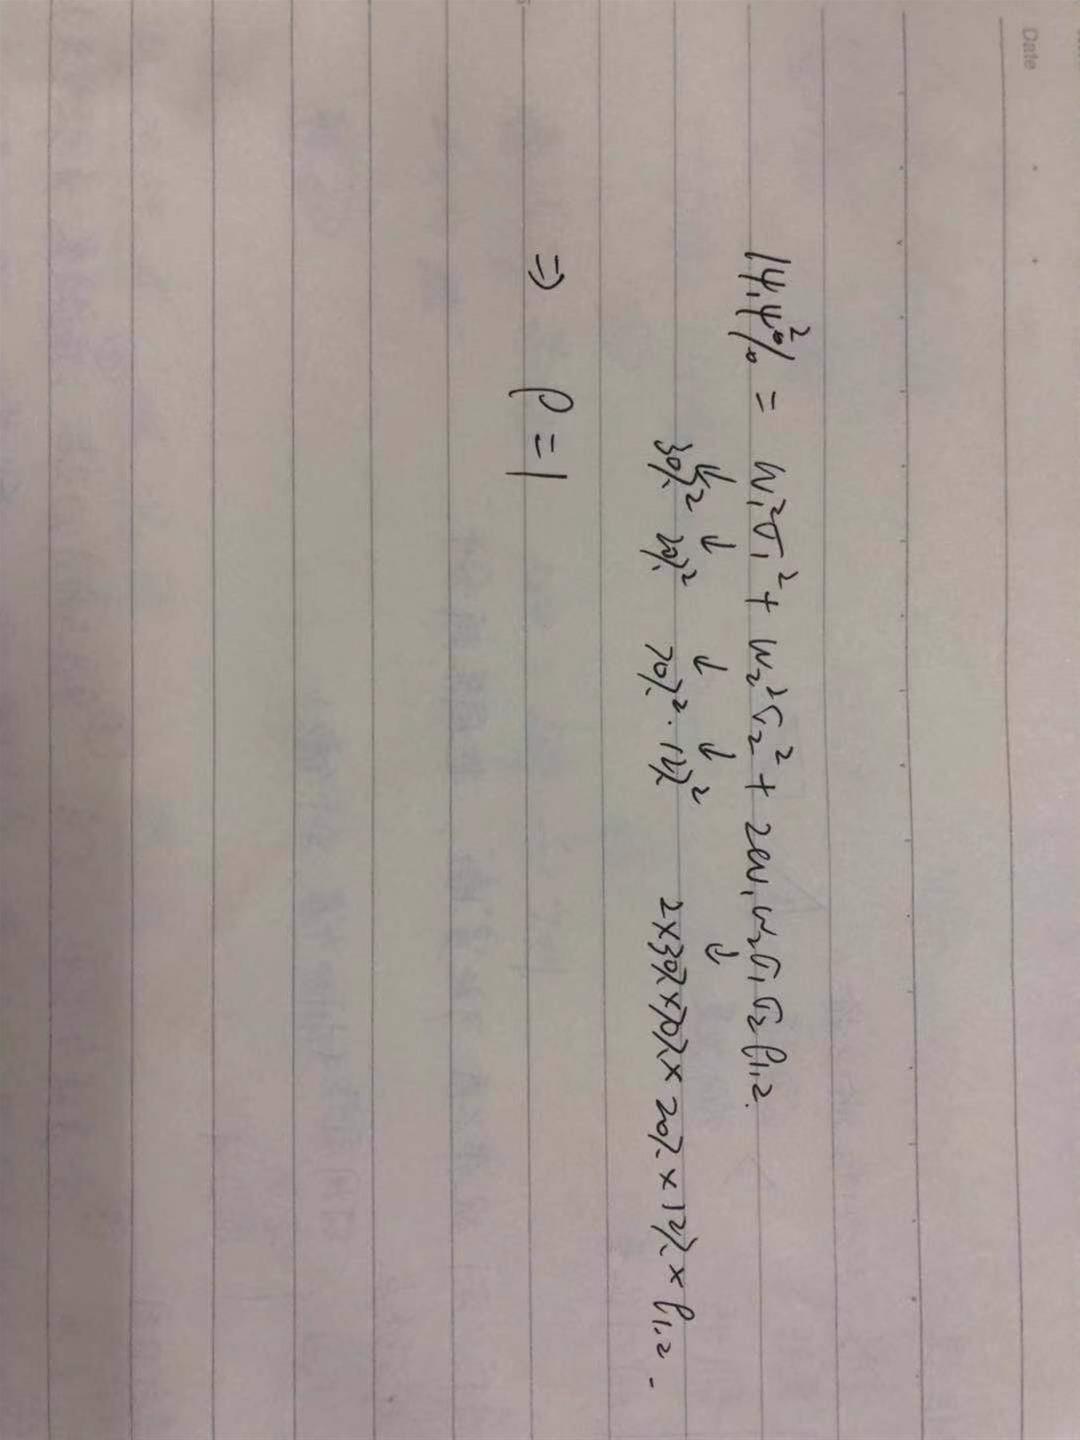 Date
14.4%² = w₁²σ₁² + w₂²σ₂² + 2w₁w₂σ₁σ₂ρ₁,₂.
↓ ↓ ↓ ↓ ↓
30%² 20%² 70%² · 12%² 2×30%×70%×20%×12%×ρ₁,₂
⇒ ρ = 1